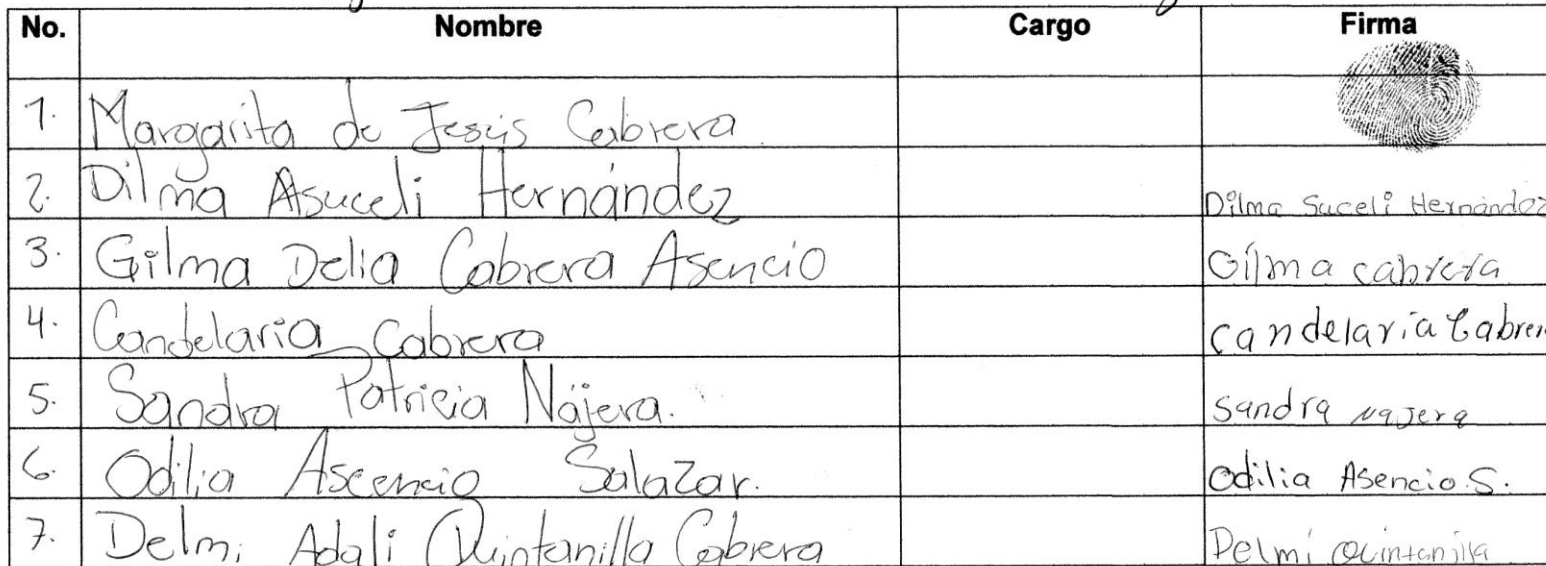 No. Nombre Cargo Firma
1. Margarita de Jesús Cabrera
2. Dilma Asuceli Hernández Dilma Suceli Hernández
3. Gilma Delia Cabrera Asencio Gilma cabrera
4. Candelaria Cabrera candelaria Cabrer
5. Sandra Patricia Nájera. Sandra Najera
6. Odilia Ascencio Salazar. Odilia Asencio.S.
7. Delmi Adali Quintanilla Cabrera Delmi Quintanilla